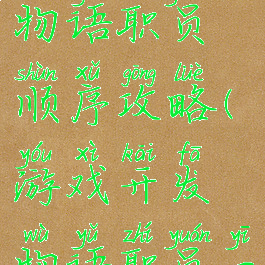 物语职员
shùn xù gōng lüè
顺序攻略(
yóu xì kāi fā
游戏开发
wù yǔ zhí yuán yī